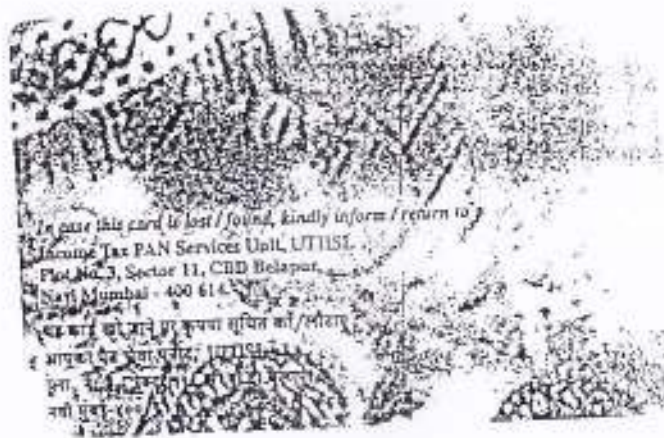 In case this card is lost / found, kindly inform / return to
Income Tax PAN Services Unit, UTIISL
Plot No. 3, Sector 11, CBD Belapur,
Navi Mumbai - 400 614.
यह कार्ड खो जाने पर कृपया सूचित करें/लौटाएं
आयकर पैन सेवा यूनीट, UTIISL
नवी मुंबई-४००